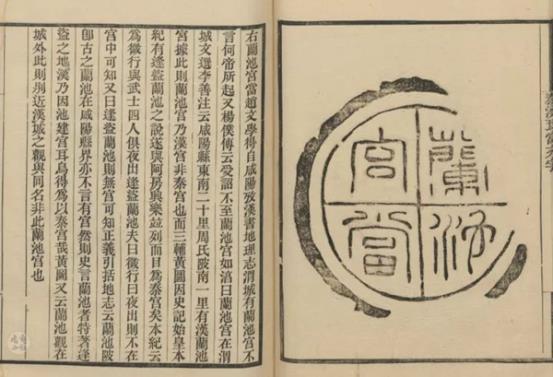 蘭池
宮當
右蘭池宮當趙文學得自咸陽攷漢書地理志渭城有蘭池宮不
言何帝所起又楊僕傳云受詔不至蘭池宮如淳曰蘭池宮在渭
城文選李善注云咸陽縣東南二十里周氏陂南一里有漢蘭池
宮據此則蘭池宮乃漢宮非秦宮也而三輔黃圖因史記始皇本
紀有逢盜蘭池之說遂與阿房興樂並列而目為秦宮矣本紀云
為微行與武士四人俱夜出逢盜蘭池夫曰微行曰夜出則不在
宮中可知又曰逢盜蘭池則無宮可知正義引括地志云蘭池陂
卽古之蘭池在咸陽縣界亦不言有宮然則史言蘭池者特著逢
盜之地漢乃因池建宮耳烏得為以秦宮哉黃圖又云蘭池觀在
城外此則別近漢城之觀與同名非此蘭池宮也